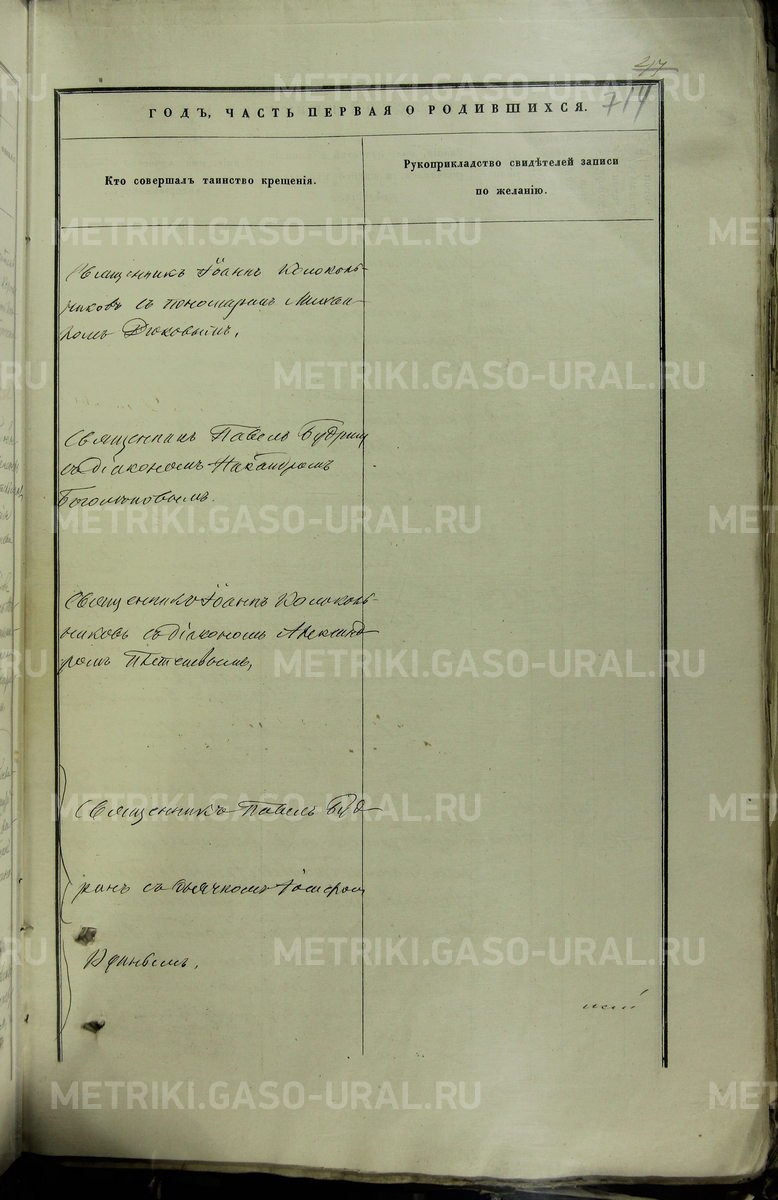 714
ГОДЪ, ЧАСТЬ ПЕРВАЯ О РОДИВШИХСЯ.
Кто совершалъ таинство крещенія.
Рукоприкладство свидѣтелей записи
по желанію.
Священникъ Іоаннъ Колоколь-
никовъ съ пономаремъ Михаи-
ломъ
Священникъ Павелъ Будринъ
съ діакономъ Никандромъ
Священникъ Іоаннъ Колоколь-
никовъ съ діакономъ Александ-
ромъ
Священникъ Павелъ Буд-
ринъ съ дьячкомъ
METRIKI.GASO-URAL.RU